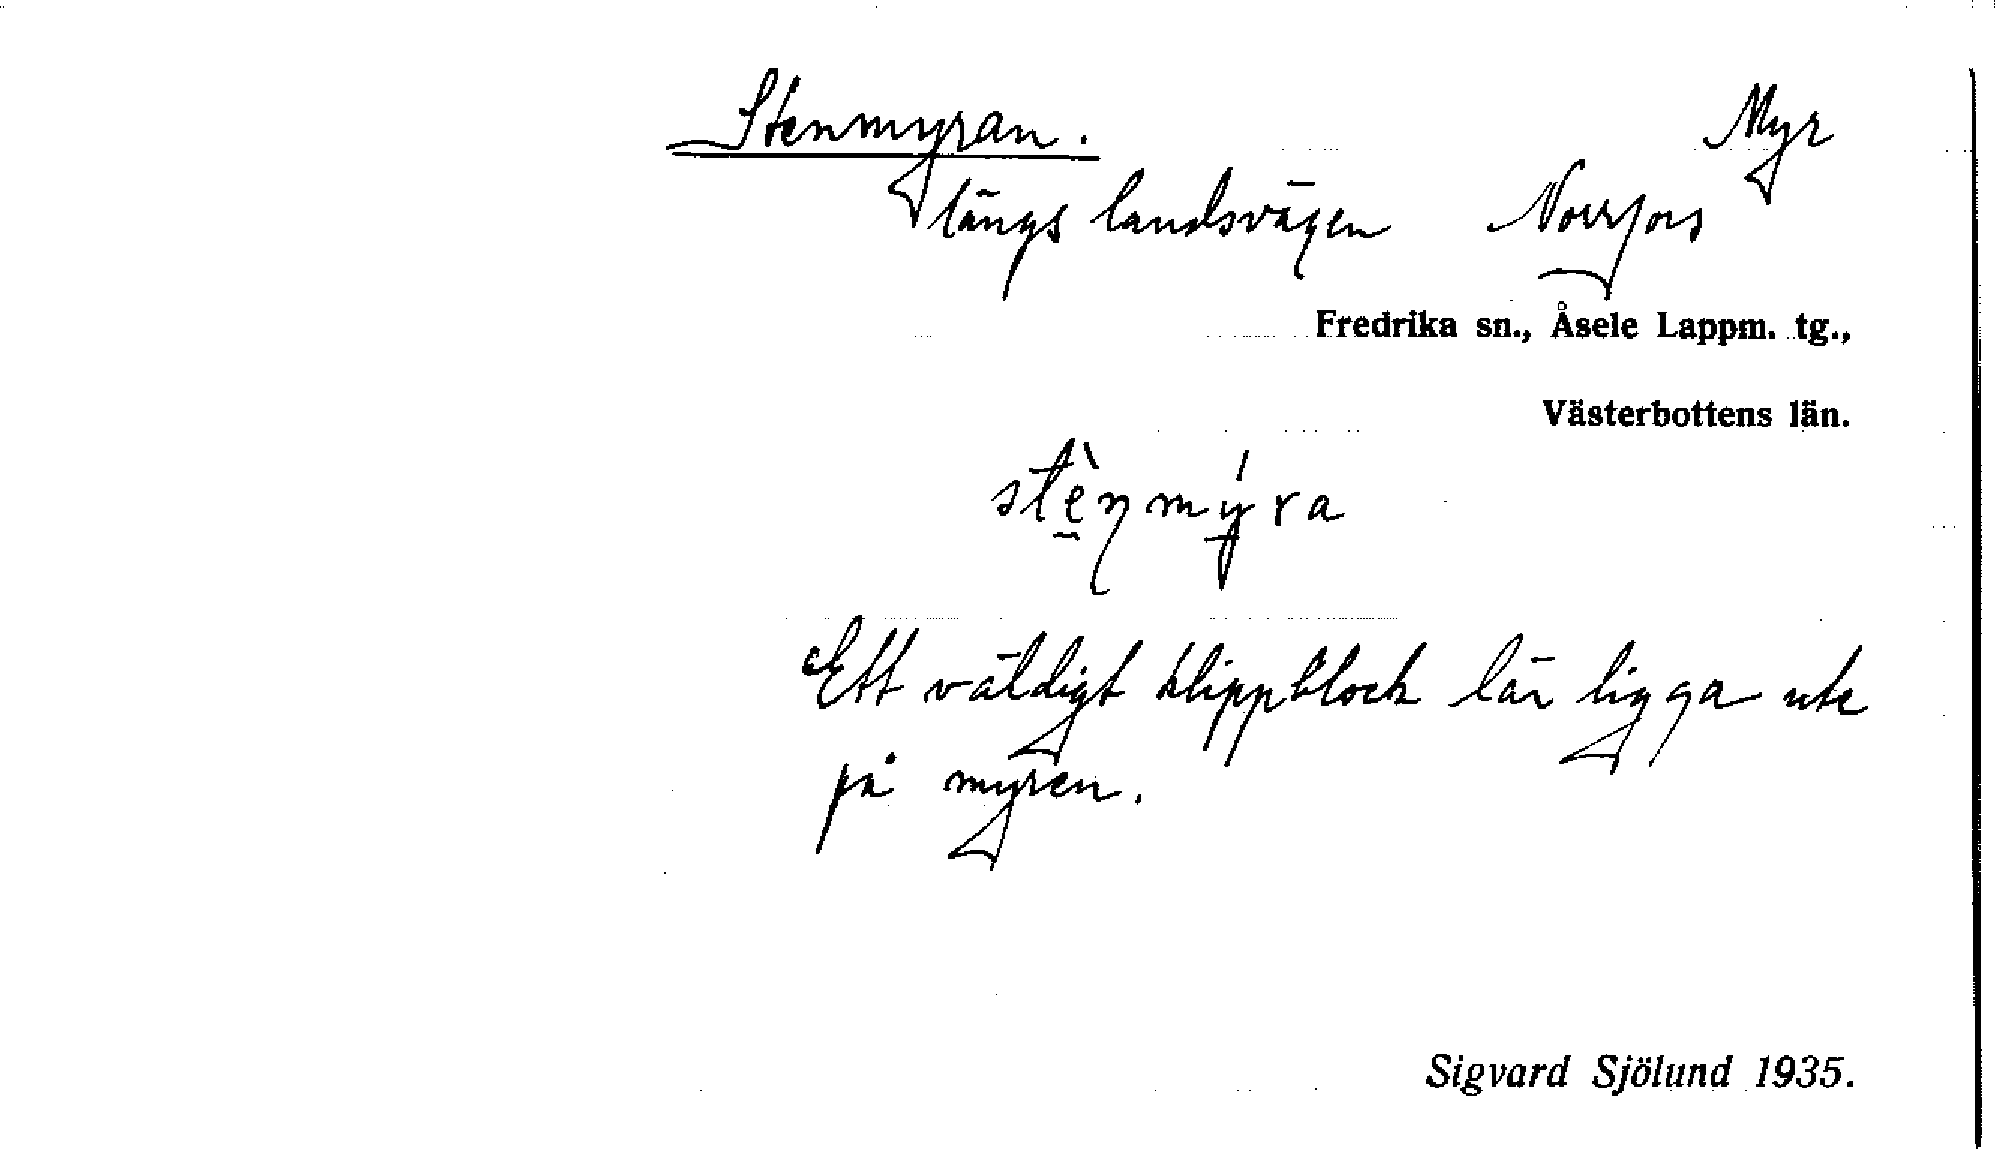 Stenmyran. Myr
längs landsvägen Norrfors
Fredrika sn., Åsele Lappm. tg.,
Västerbottens län.
stè̱ŋmý̱ra
Ett väldigt klippblock lär ligga ute
på myren.
Sigvard Sjölund 1935.